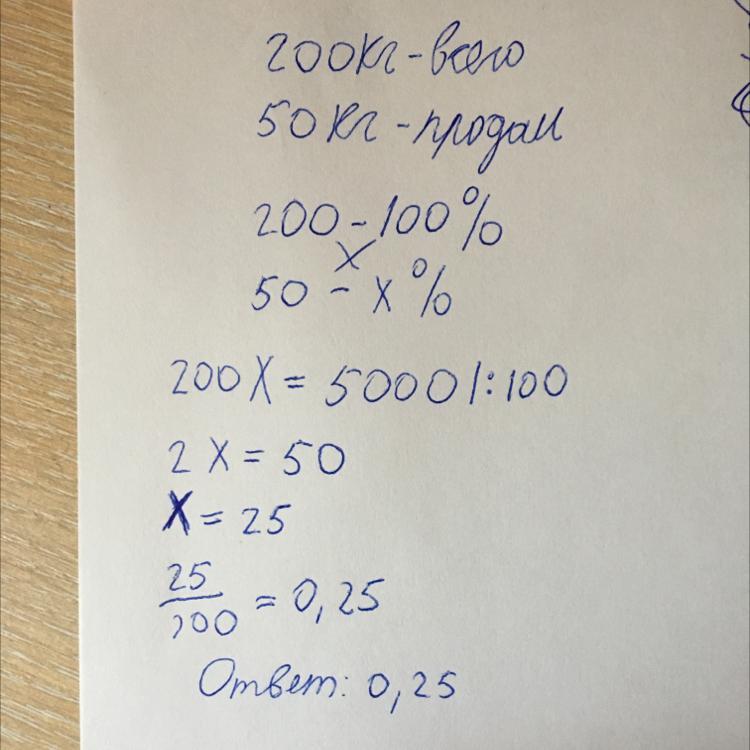 200кг-всего
50кг-продали
200-100%
х
50-х%
200х=5000|:100
2х=50
х=25
25
100 = 0,25
Ответ: 0,25